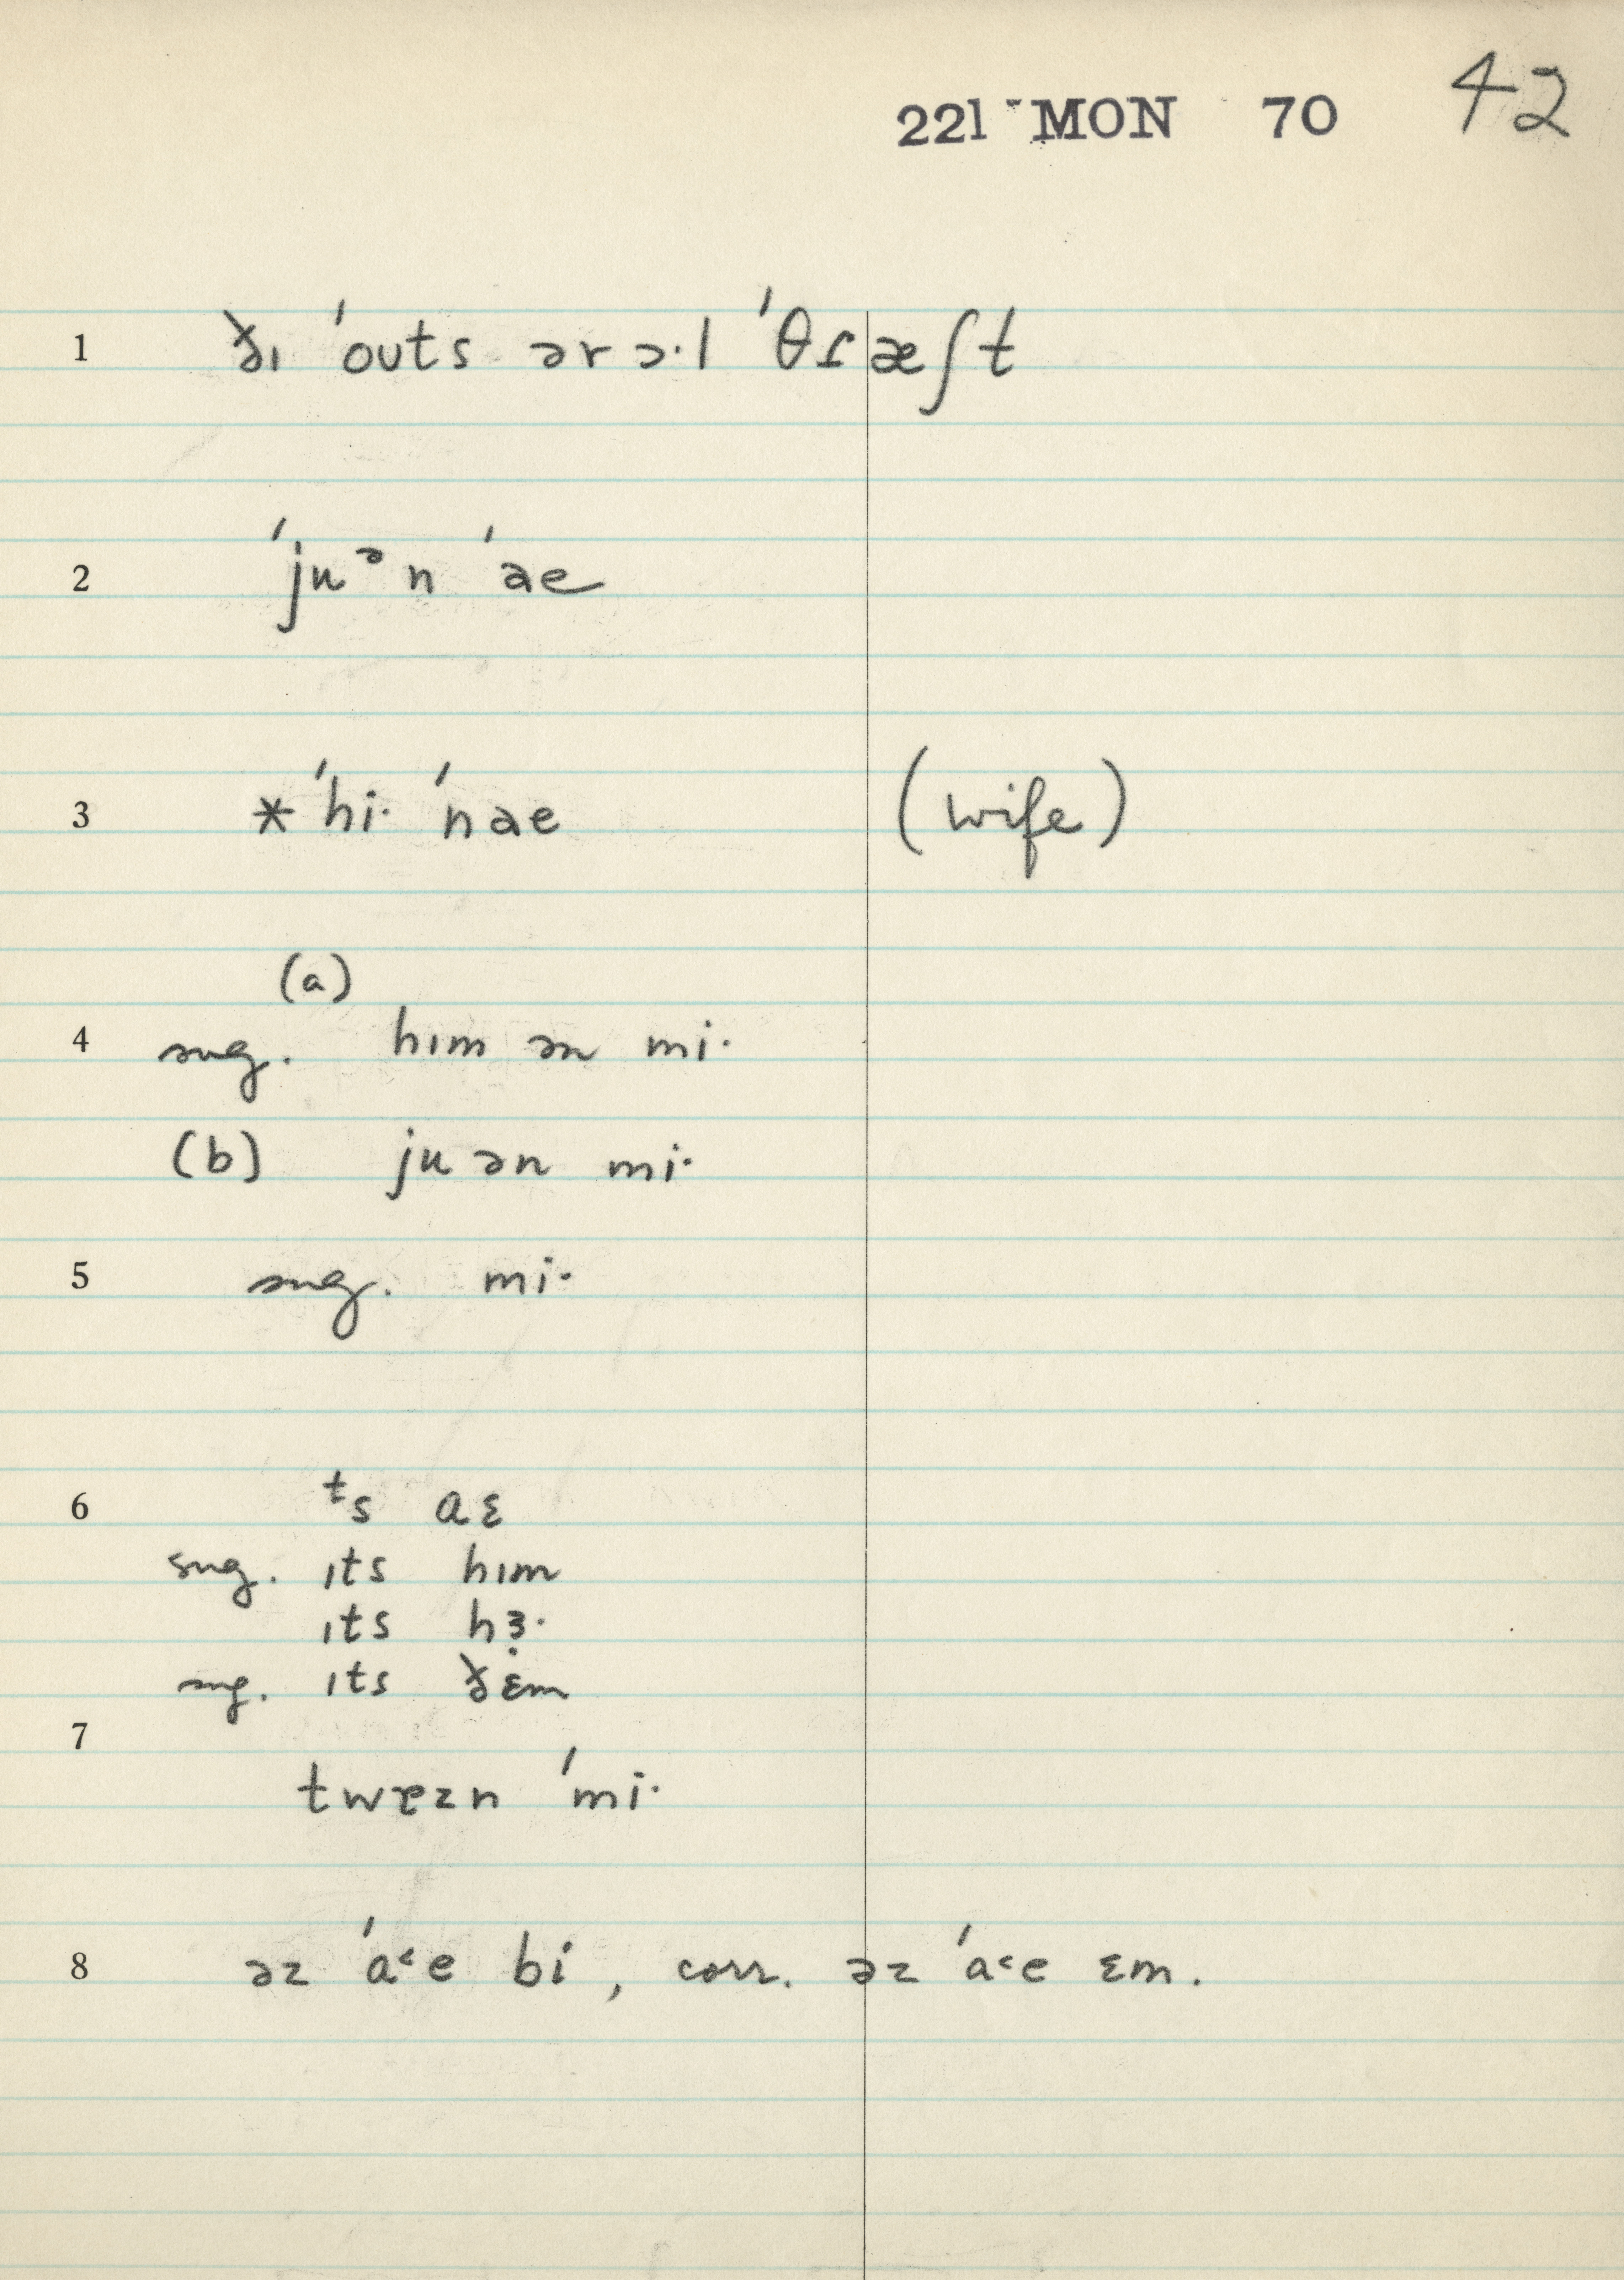 221 MON 70 42
1 ðɪ ˈouts ər ɔ·l ˈθɾæʃt
2 ˈjuᵊn ˈae
3 *ˈhi· ˈnae (wife)
(a)
4 sug. hɪm ən mi·
(b) ju ən mi·
5 sug. mi·
6 ᵗs aɛ
sug. ɪts hɪm
ɪts hɜ̣·
sug. ɪts ðɛm
7
twɐzn ˈmi·
8 əz ˈa˂e bi, corr. əz ˈa˂e ɛm.